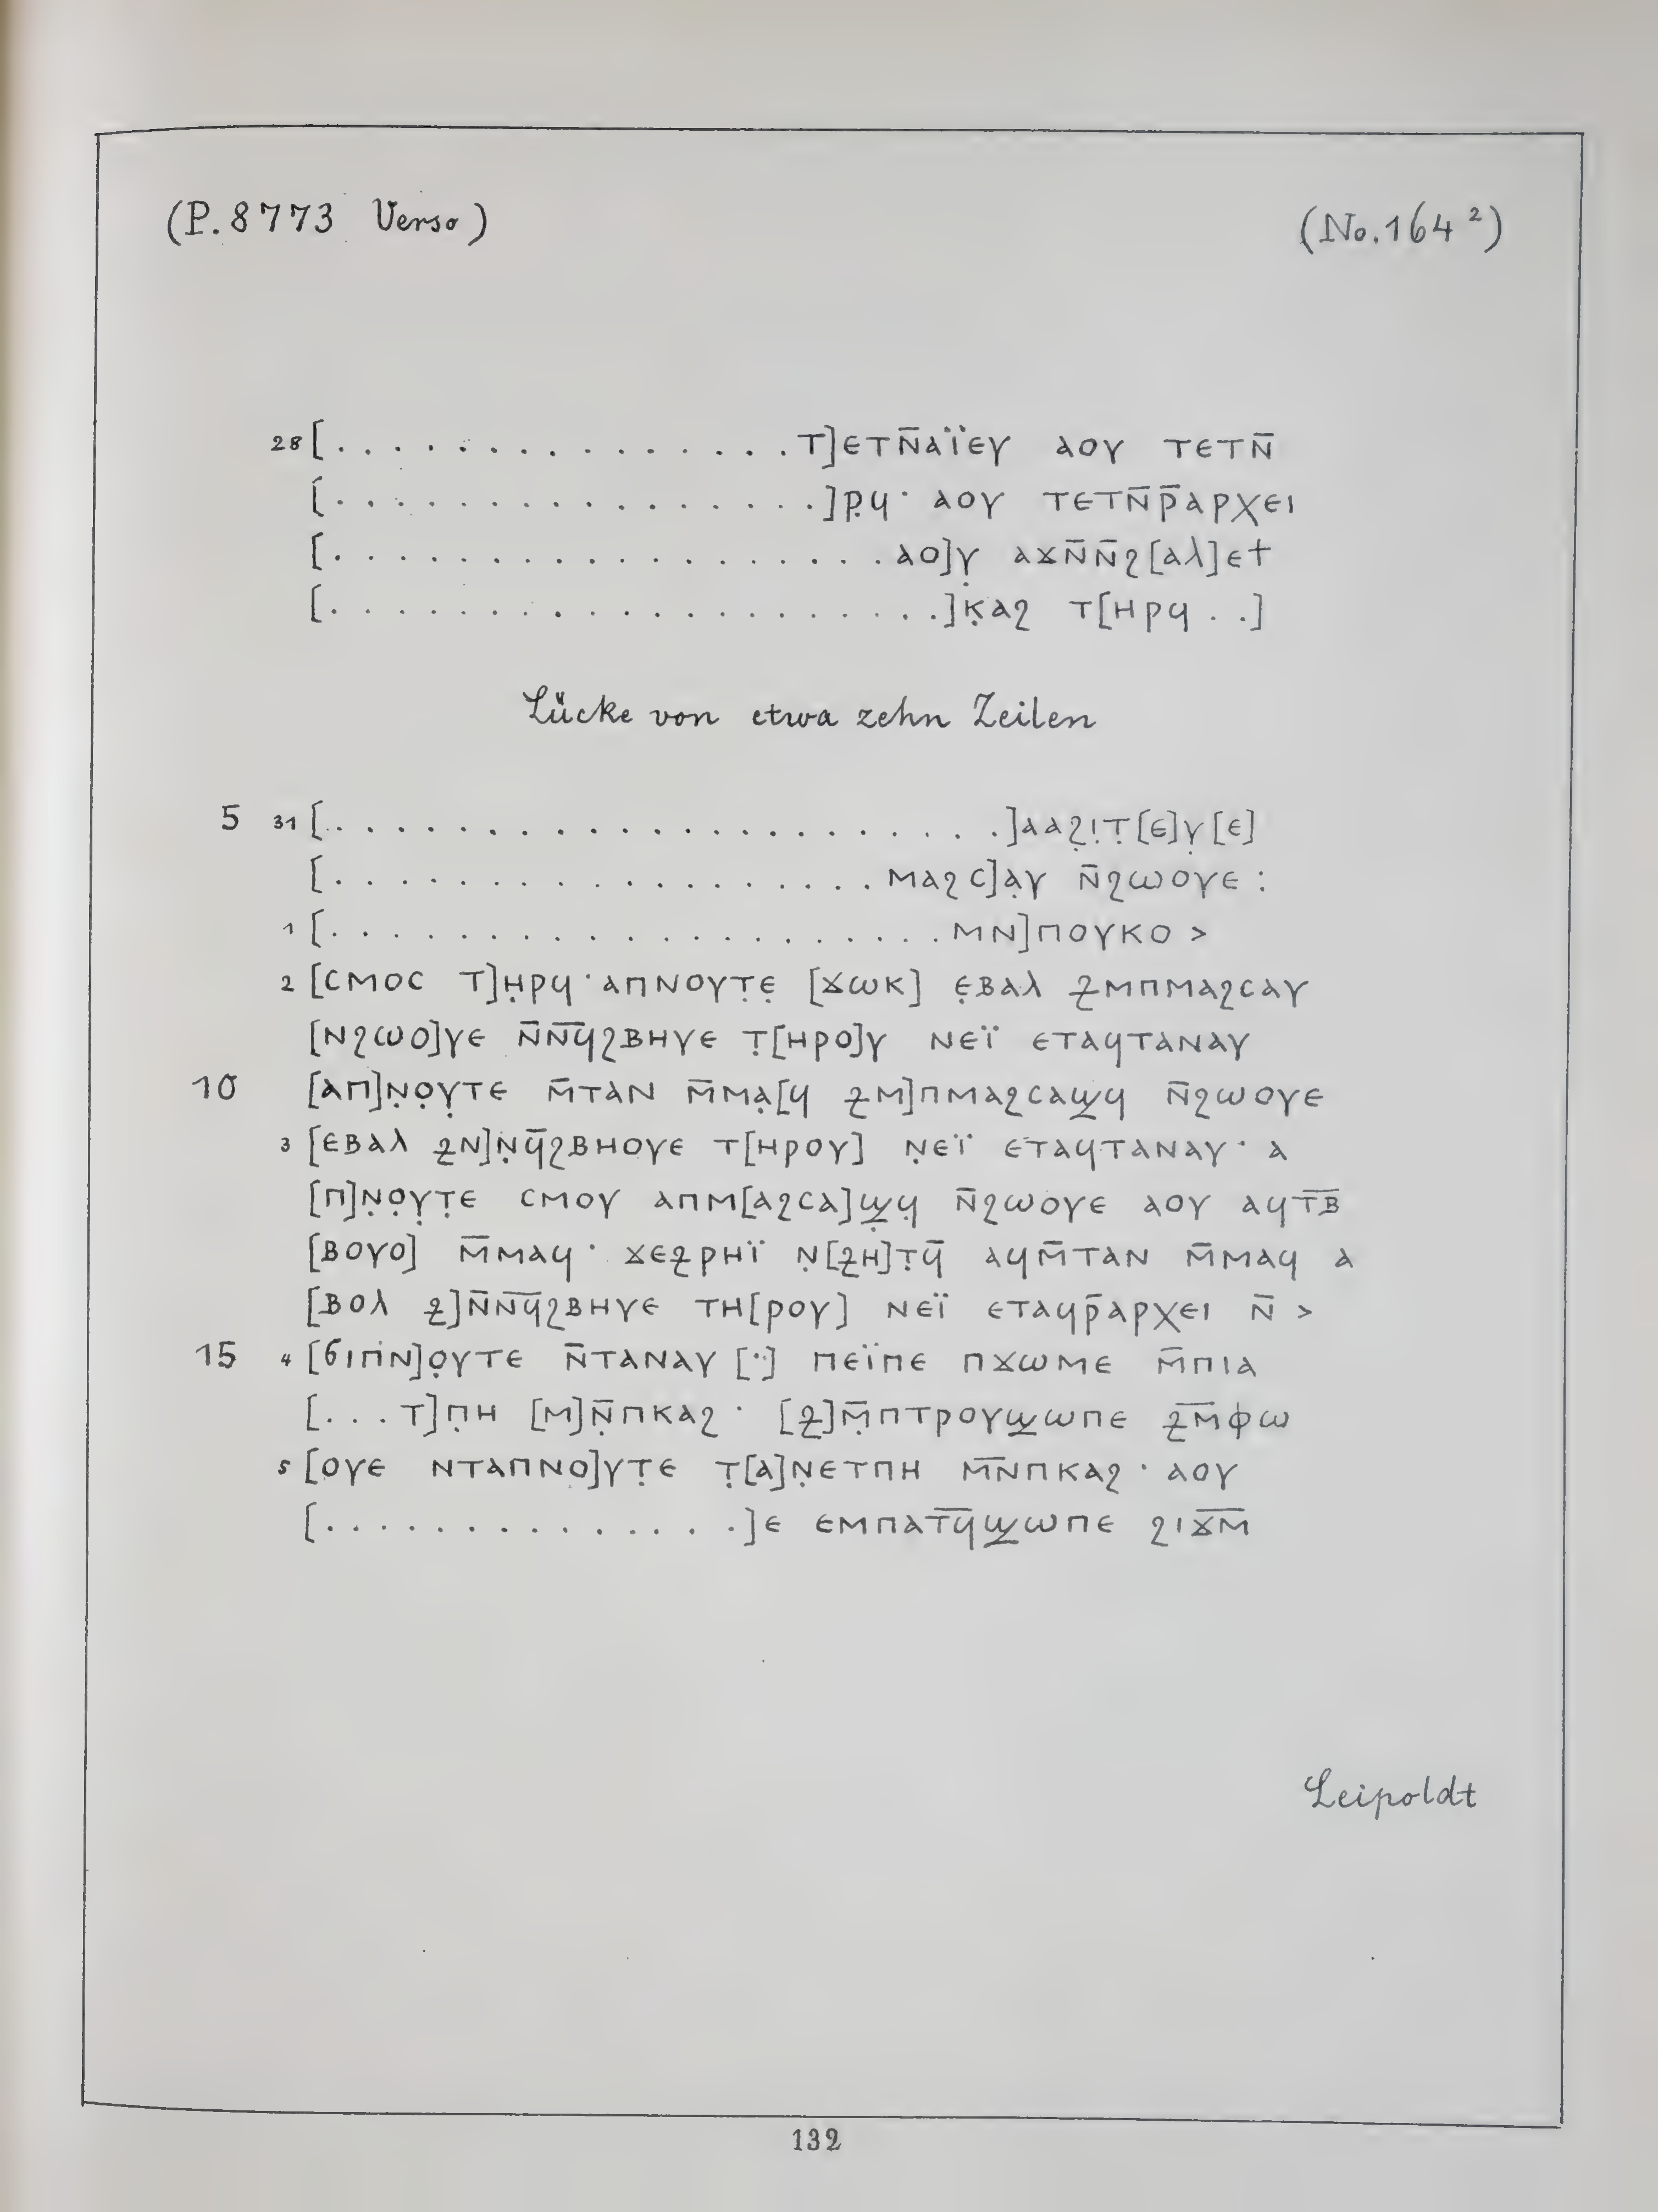 (P. 8773 Verso) (No. 164²)
28 [. . . . . . . . . . . . . . . ⲧ]ⲉⲧⲛ̄ⲁⲓ̈ⲉⲩ ⲁⲟⲩ ⲧⲉⲧⲛ̄
[. . . . . . . . . . . . . . . .]ⲣ̣ϥ· ⲁⲟⲩ ⲧⲉⲧⲛ̄ⲣ̄ⲁⲣⲭⲉⲓ
[. . . . . . . . . . . . . . . . . . ⲁⲟ]ⲩ̣ ⲁϫⲛ̄ⲛ̄ϩ[ⲁⲗ]ⲉϯ
[. . . . . . . . . . . . . . . . . . . .]ⲕ̣ⲁϩ ⲧ[ⲏⲣϥ . .]
Lücke von etwa zehn Zeilen
5 31 [. . . . . . . . . . . . . . . . . . . . . .]ⲁⲁϩ̣ⲓ̣ⲧ̣[ⲉ]ⲩ̣[ⲉ]
[. . . . . . . . . . . . . . . . . . ⲙⲁϩⲥ]ⲁ̣ⲩ ⲛ̄ϩⲱⲟⲩⲉ :
1 [. . . . . . . . . . . . . . . . . . . . ⲙⲛ]ⲡⲟⲩⲕⲟ >
2 [ⲥⲙⲟⲥ ⲧ]ⲏ̣ⲣϥ·ⲁⲡⲛⲟⲩⲧ̣ⲉ̣ [ϫⲱⲕ] ⲉ̣ⲃⲁⲗ ⳉⲙⲡⲙⲁϩⲥⲁⲩ
[ⲛϩⲱⲟ]ⲩⲉ ⲛ̄ⲛ̄ϥ̄ϩⲃⲏⲩⲉ ⲧ̣[ⲏⲣⲟ]ⲩ ⲛⲉⲓ̈ ⲉⲧⲁϥⲧⲁⲛⲁⲩ
10 [ⲁⲡ]ⲛ̣ⲟ̣ⲩ̣ⲧⲉ ⲙ̄ⲧⲁⲛ ⲙ̄ⲙⲁ̣[ϥ ⳉⲙ]ⲡⲙⲁϩⲥⲁϣϥ ⲛ̄ϩⲱⲟⲩⲉ
3 [ⲉⲃⲁⲗ ⳉⲛ]ⲛ̣ϥ̄ϩⲃⲏⲟⲩⲉ ⲧ[ⲏⲣⲟⲩ] ⲛ̣ⲉⲓ̈ ⲉⲧⲁϥⲧⲁⲛⲁⲩ· ⲁ
[ⲡ]ⲛ̣ⲟ̣ⲩ̣ⲧ̣ⲉ ⲥⲙⲟⲩ ⲁⲡⲙ[ⲁϩⲥⲁ]ϣ̣ϥ̣ ⲛ̄ϩⲱⲟⲩⲉ ⲁⲟⲩ ⲁϥⲧ̄ⲃ̄
[ⲃⲟⲩⲟ] ⲙ̄ⲙⲁϥ· ϫⲉⳉⲣⲏⲓ̈ ⲛ̣[ⳉⲏ]ⲧ̣ϥ̄ ⲁϥⲙ̄ⲧⲁⲛ ⲙ̄ⲙⲁϥ ⲁ
[ⲃⲟⲗ ⳉ]ⲛ̄ⲛ̄ϥ̄ϩⲃⲏⲩⲉ ⲧⲏ[ⲣⲟⲩ] ⲛⲉⲓ̈ ⲉⲧⲁϥⲣ̄ⲁⲣⲭⲉⲓ ⲛ̄ >
15 4 [ϭⲓⲡⲛ]ⲟ̣ⲩⲧⲉ ⲛ̄ⲧⲁⲛⲁⲩ [·] ⲡⲉⲓ̈ⲡⲉ ⲡϫⲱⲙⲉ ⲙ̄ⲡⲓⲁ
[. . . ⲧ]ⲡ̣ⲏ [ⲙ]ⲛ̣̄ⲡⲕⲁϩ· [ⳉ]ⲙ̣̄ⲡⲧⲣⲟⲩϣⲱⲡⲉ ⳉ̄ⲙ̄ⲫⲱ
5 [ⲟⲩⲉ ⲛⲧⲁⲡⲛⲟ]ⲩⲧ̣ⲉ ⲧ̣[ⲁ]ⲛ̣ⲉⲧⲡⲏ ⲙ̄ⲛ̄ⲡⲕⲁϩ· ⲁⲟⲩ
[. . . . . . . . . . . . . .]ⲉ ⲉⲙⲡⲁⲧ̄ϥ̄ϣⲱⲡⲉ ϩⲓϫ̄ⲙ̄
Leipoldt
132